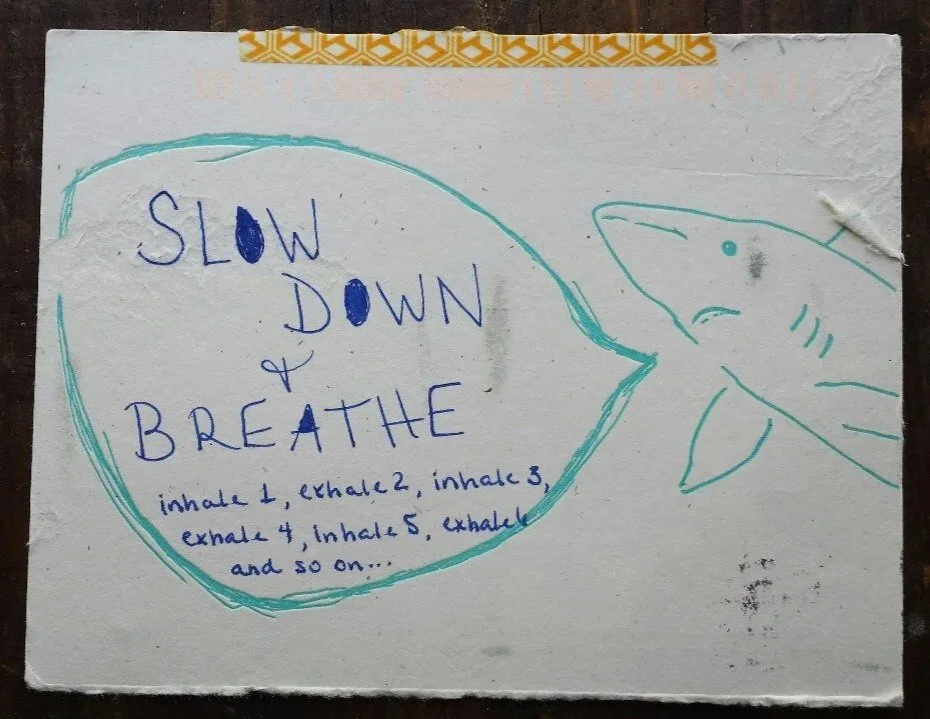 SLOW
DOWN
&
BREATHE
inhale 1, exhale 2, inhale 3,
exhale 4, inhale 5, exhale 6
and so on...